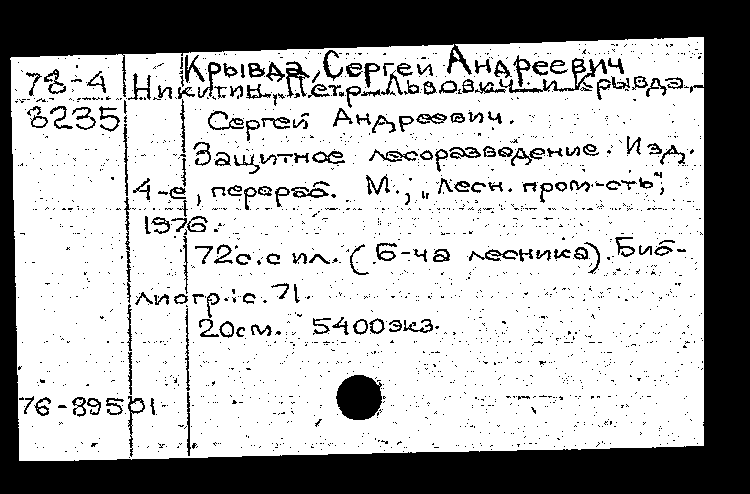 Крывда, Сергей Андреевич
78-4 Никитин, Петр Львович и Крывда,
8235 Сергей Андреевич.
Защитное лесоразведение. Изд.
4-е, перераб. М., „Лесн. пром-сть",
1976.
72с.с ил. (Б-ча лесника). Биб-
лиогр.: с. 71.
20см. 5400экз.
76-89501